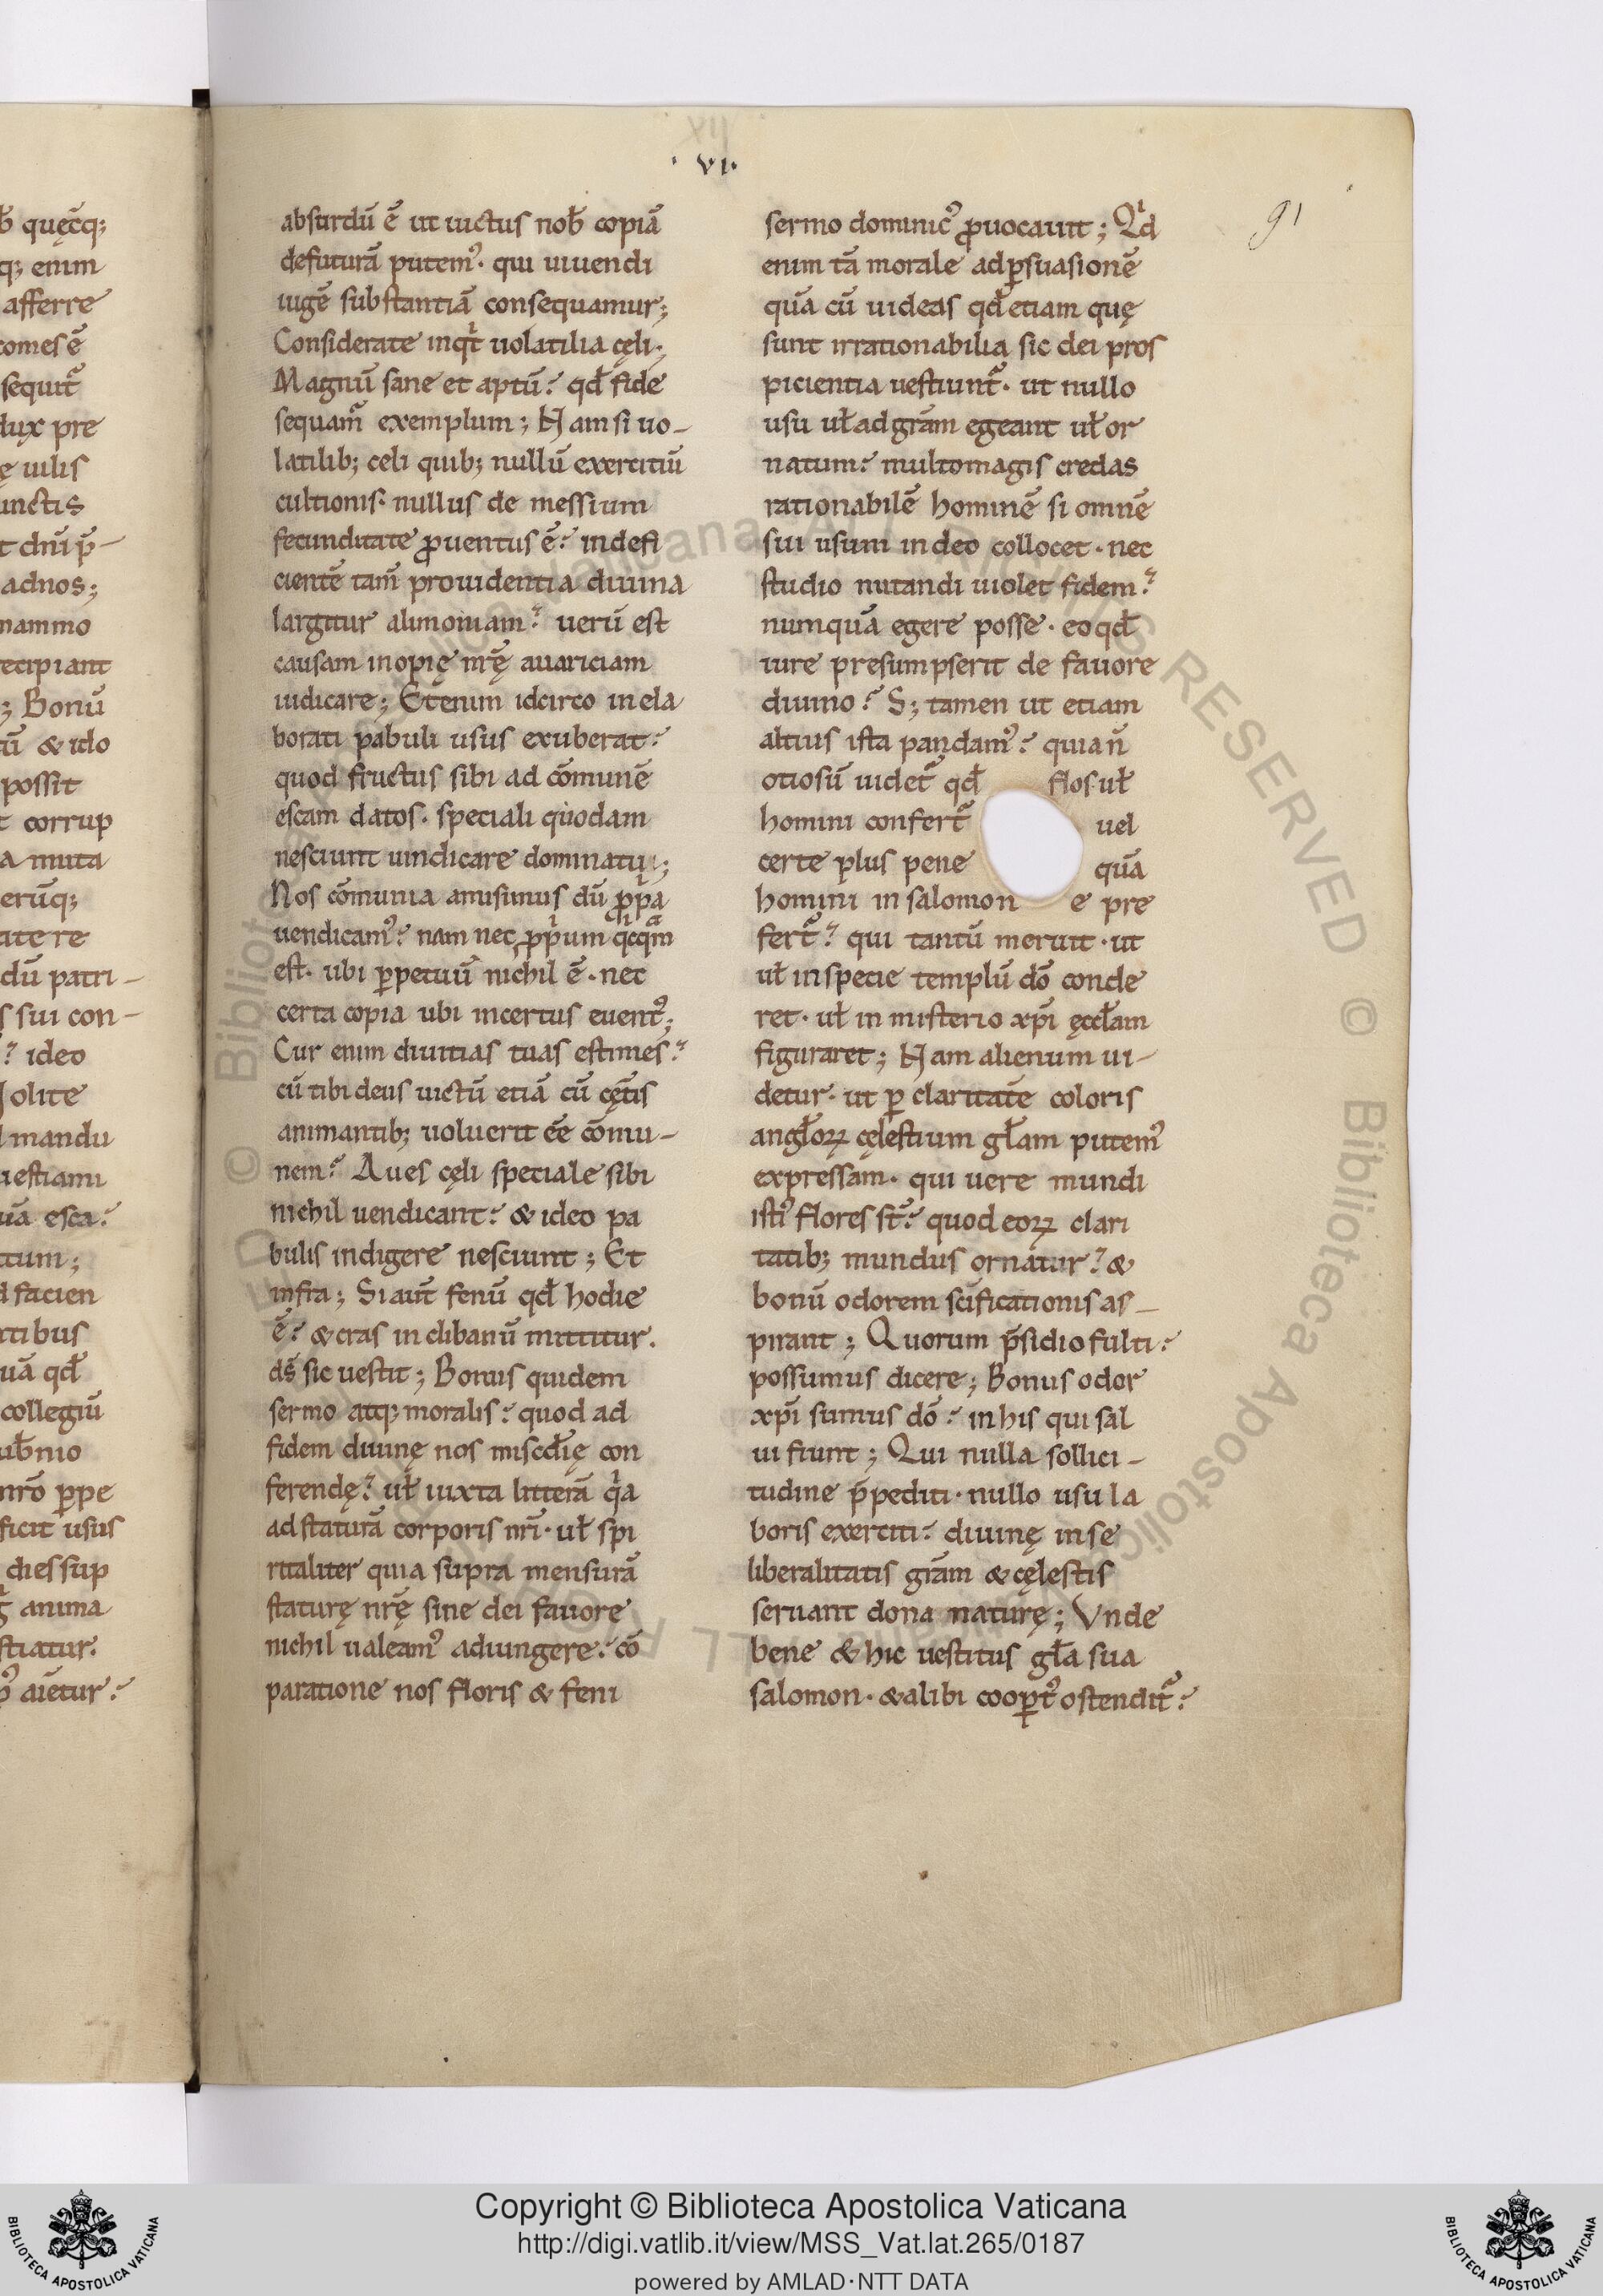 · VI·
91
absurdū ē ut uictus nob̄ copiā
defuturā putem᾿· qui uiuendi
iugē substantiā consequamur;
Considerate inqͥt uolatilia cęli;
Magnū sane et aptū? qd̄ fide
sequam̄ exemplum; Nam si uo-
latilib; celi quib; nullū exercitiū
cultionis· nullus de messium
fecunditate ꝓuentus ē? indefi
cientē tam̄ prouidentia diuina
largitur alimoniam? uerū est
causam inopię nr̄ę auariciam
iudicare; Etenim idcirco inela
borati pabuli usus exuberat?
quod fructus sibi ad cōmunē
escam datos· speciali quodam
nesciunt uindicare dominatu;
Nos cōmunia amisimus dū ꝓpͥa
uendicam᾿? nam nec ꝓpͥum qͥcqͣm
est· ubi ꝑpetuū nichil ē· nec
certa copia ubi incertus euent᾿;
Cur enim diuitias tuas estimes?
cū tibi deus uictū etiā cū cęt̄is
animantib; uoluerit eē cōmu-
nem? Aues cęli speciale sibi
nichil uendicant? & ideo pa
bulis indigere nesciunt; Et
infra; Si aut̄ fenū qd̄ hodie
ē? & cras in clibanū mittitur.
ds̄ sic uestit; Bonus quidem
sermo atq; moralis? quod ad
fidem diuinę nos misc̄dię con
ferendę? ul̄ iuxta litterā qͥa
ad staturā corporis nr̄i· ul̄ spi
ritaliter quia supra mensurā
staturę nr̄ę sine dei fauore
nichil ualeam᾿ adiungere? cō
paratione nos floris & feni
sermo dominic᾿ ꝓuocauit; Qͥd
enim tā morale ad ꝑsuasionē
quā cū uideas qd̄ etiam quę
sunt irrationabilia sic dei pros
picientia uestiunt᷑· ut nullo
usu ul̄ ad grām egeant ul̄ or
natum? multomagis credas
rationabilē hominē si omnē
sui usum in deo collocet· nec
studio nutandi uiolet fidem?
numquā egere posse· eo qd̄
iure presumpserit de fauore
diuino? S; tamen ut etiam
altius ista pandam᾿? quia n̄
otiosū uidet᷑ qd̄ flos ul̄
homini confert᷑ uel
certe plus pene quā
homini in salomon e pre
fert᷑? qui tantū meruit· ut
ul̄ in specie templū dō conde
ret· ul̄ in misterio xp̄i ęccl̄am
figuraret; Nam alienum ui-
detur· ut ꝑ claritatē coloris
angl̄oꝝ cęlestium gl̄am putem᾿
expressam· qui uere mundi
isti᾿ flores st̄? quod eoꝝ clari
tatib; mundus ornatur? &
bonū odorem sc̄ificationis as-
pirant; Quorum p̄sidio fulti?
possumus dicere; Bonus odor
xp̄i sumus dō? in his qui sal
ui fiunt; Qui nulla sollici-
tudine p̄pediti· nullo usu la
boris exerciti? diuinę in se
liberalitatis grām & cęlestis
seruant dona naturę; Vnde
bene & hic uestitus gl̄a sua
salomon· & alibi cooꝑt᾿ ostendit᷑?
Copyright © Biblioteca Apostolica Vaticana
http://digi.vatlib.it/view/MSS_Vat.lat.265/0187
powered by AMLAD·NTT DATA
BIBLIOTECA APOSTOLICA VATICANA
BIBLIOTECA APOSTOLICA VATICANA